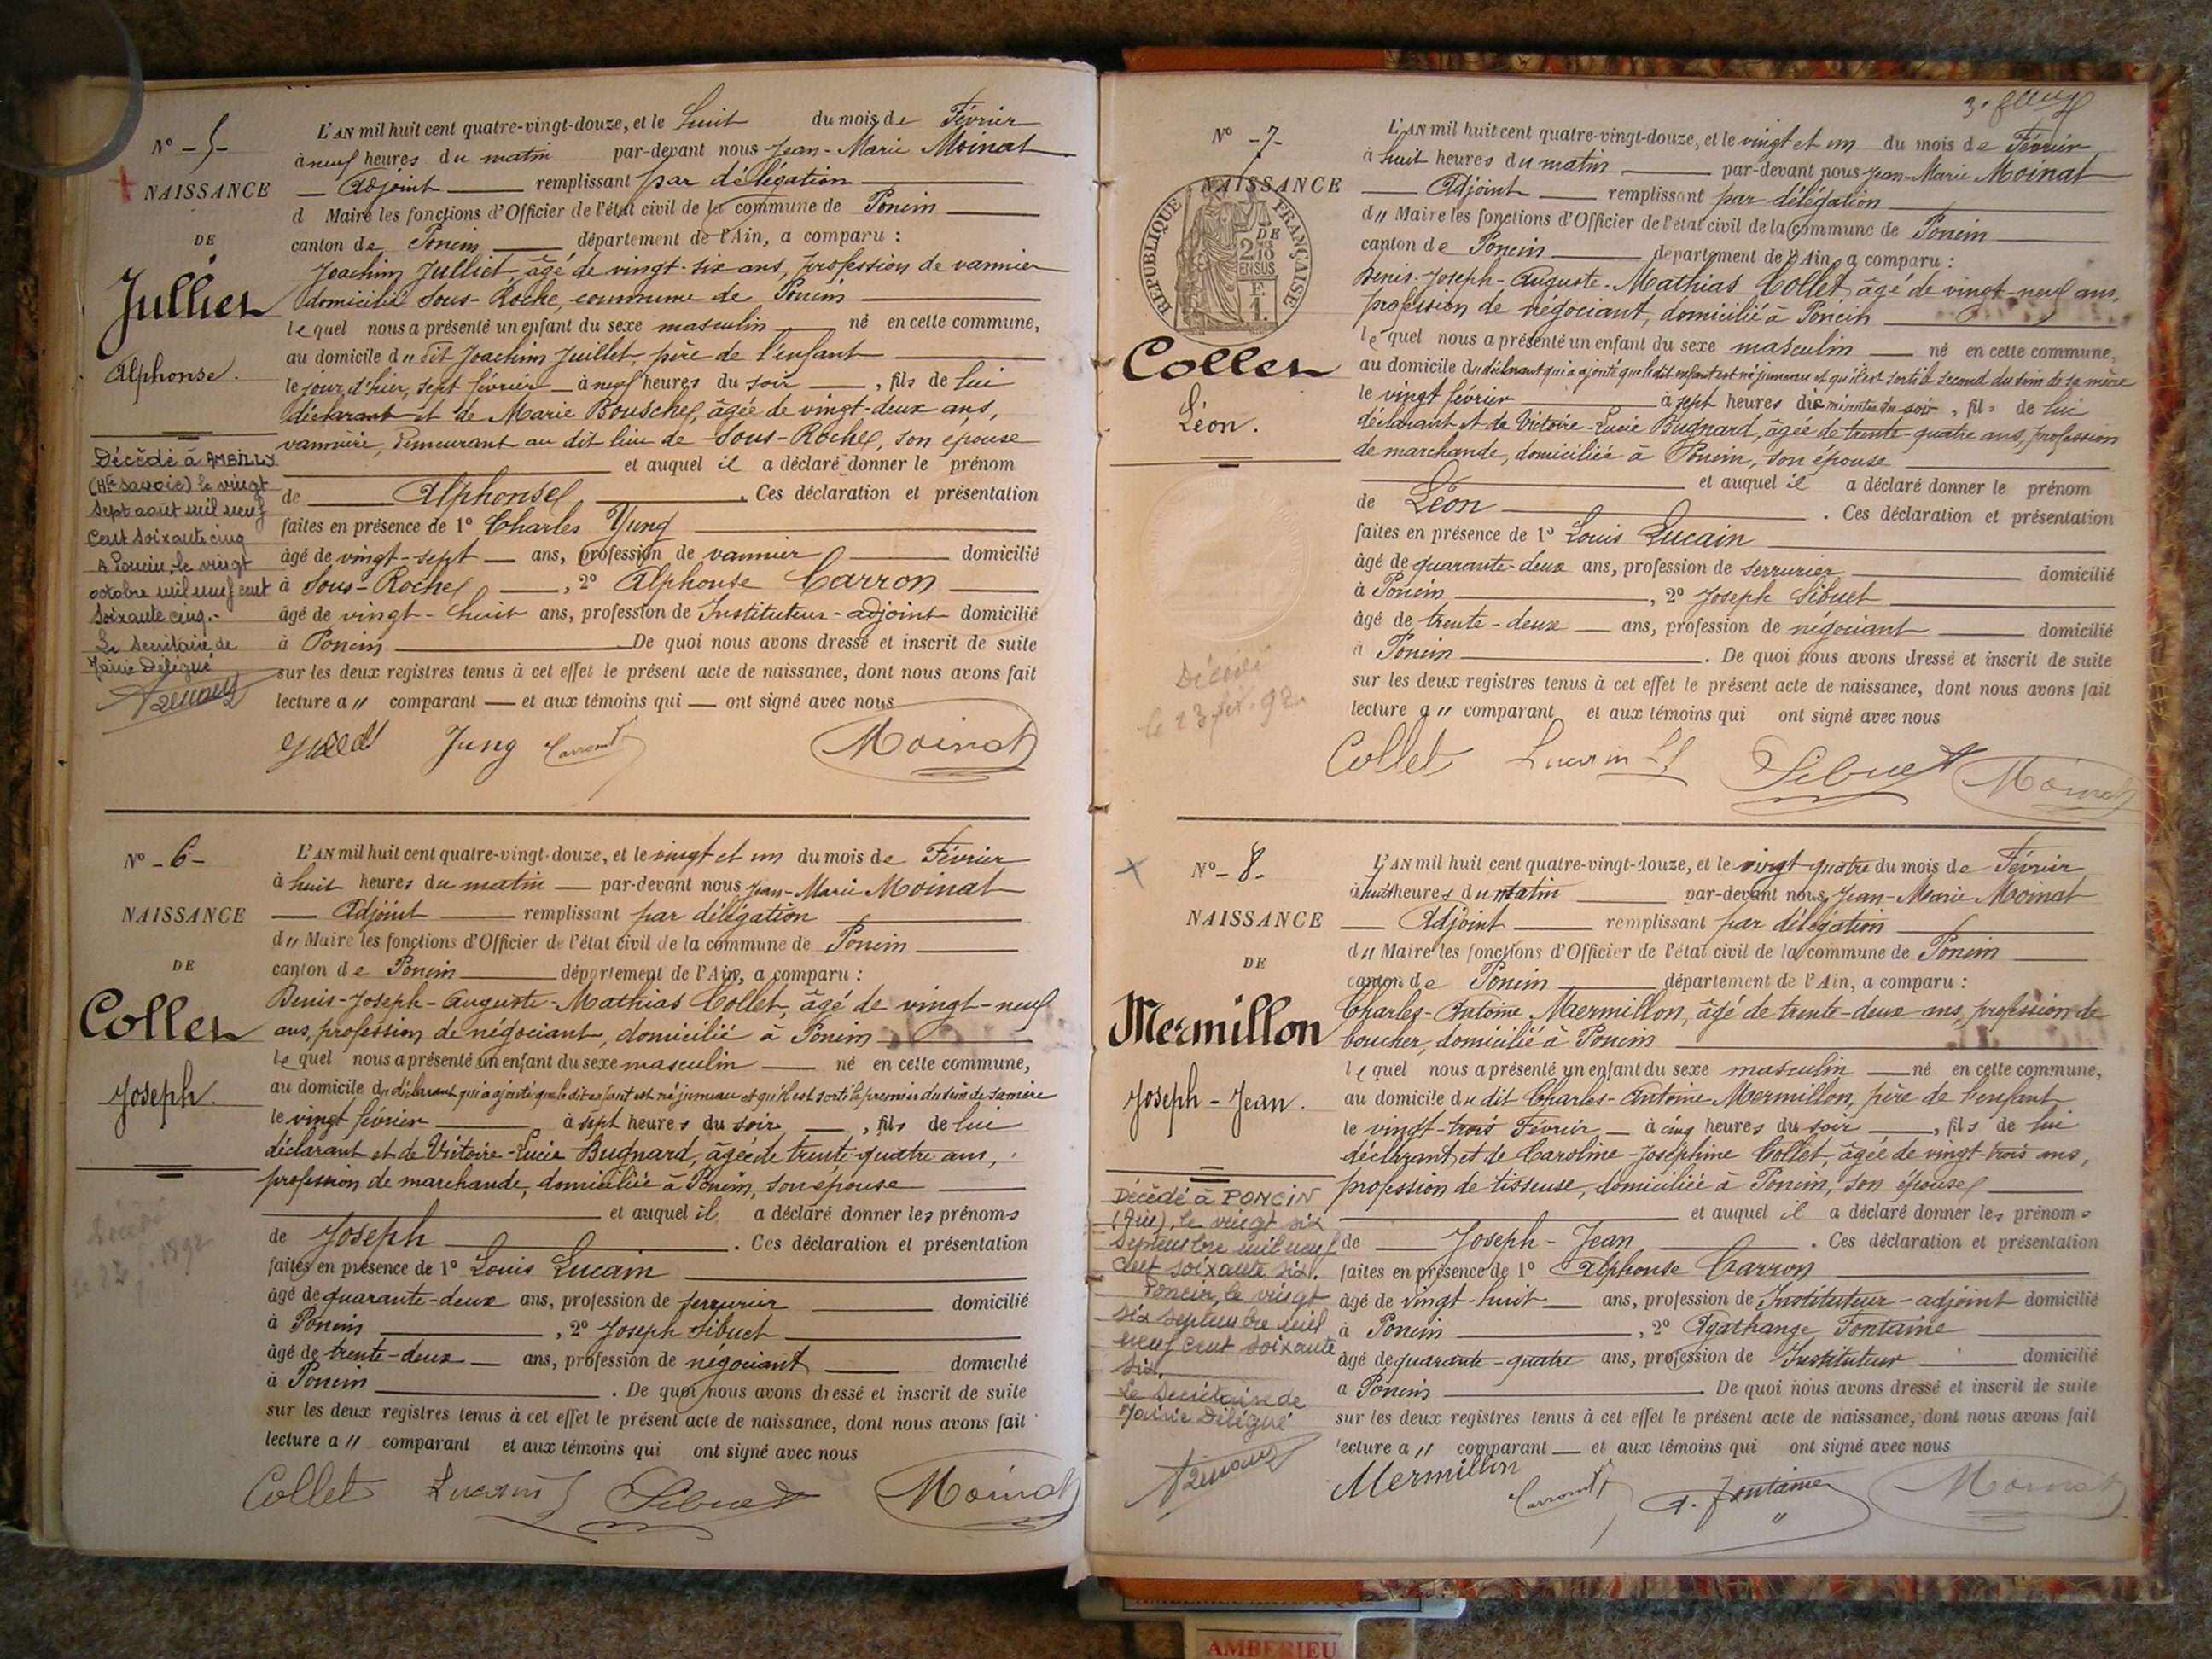 N° - 5 -
NAISSANCE
DE
Julliet
Alphonse.
Décédé à AMBILLY
(Hte Savoie) le vingt
sept août mil neuf
cent soixante cinq
A Poncin, le vingt
octobre mil neuf cent
soixante cinq.-
Le Secrétaire de
Mairie Délégué
L'AN mil huit cent quatre-vingt-douze, et le huit du mois de Février
à neuf heures du matin par-devant nous Jean-Marie Moinat
Adjoint remplissant par délégation
d Maire les fonctions d'Officier de l'état civil de la commune de Poncin
canton de Poncin département de l'Ain, a comparu :
Joachim Julliet, âgé de vingt-six ans, profession de vannier
domicilié Sous-Roche, commune de Poncin
lequel nous a présenté un enfant du sexe masculin né en cette commune,
au domicile du dit Joachim Juillet, père de l'enfant
le jour d'hier, sept février à neuf heures du soir , fils de lui
déclarant et de Marie Bouschet, âgée de vingt-deux ans,
vannière, demeurant au dit lieu de Sous-Roche, son épouse
et auquel il a déclaré donner le prénom
de Alphonse . Ces déclaration et présentation
faites en présence de 1° Charles Yung
âgé de vingt-sept ans, profession de vannier domicilié
à Sous-Roche , 2° Alphonse Carron
âgé de vingt-huit ans, profession de Instituteur-adjoint domicilié
à Poncin De quoi nous avons dressé et inscrit de suite
sur les deux registres tenus à cet effet le présent acte de naissance, dont nous avons fait
lecture a " comparant et aux témoins qui ont signé avec nous
Jung Carront Moinat
N° - 6 -
NAISSANCE
DE
Collet
Joseph.
Décédé
1892
L'AN mil huit cent quatre-vingt-douze, et le vingt et un du mois de Février
à huit heures du matin par-devant nous Jean-Marie Moinat
Adjoint remplissant par délégation
d" Maire les fonctions d'Officier de l'état civil de la commune de Poncin
canton de Poncin département de l'Ain, a comparu :
Denis-Joseph-Auguste-Mathias Collet, âgé de vingt-neuf
ans, profession de négociant, domicilié à Poncin
lequel nous a présenté un enfant du sexe masculin né en cette commune,
au domicile du déclarant qui a ajouté que le dit enfant est né jumeau et qu'il est sorti le premier du sein de sa mère
le vingt février à sept heures du soir , fils de lui
déclarant et de Victoire-Lucie Bugnard, âgée de trente-quatre ans,
profession de marchande, domiciliée à Poncin, son épouse
et auquel il a déclaré donner les prénoms
de Joseph . Ces déclaration et présentation
faites en présence de 1° Louis Lucain
âgé de quarante-deux ans, profession de serrurier domicilié
à Poncin , 2° Joseph Sibuet
âgé de trente-deux ans, profession de négociant domicilié
à Poncin . De quoi nous avons dressé et inscrit de suite
sur les deux registres tenus à cet effet le présent acte de naissance, dont nous avons fait
lecture a " comparant et aux témoins qui ont signé avec nous
Collet Lucain Sibuet Moinat
N° - 7 -
NAISSANCE
DE
RÉPUBLIQUE FRANÇAISE
2/10 EN SUS
F. 1.
Collet
Léon.
Décédé
le 23 fév. 92
L'AN mil huit cent quatre-vingt-douze, et le vingt et un du mois de Février
à huit heures du matin par-devant nous Jean-Marie Moinat
Adjoint remplissant par délégation
d" Maire les fonctions d'Officier de l'état civil de la commune de Poncin
canton de Poncin département de l'Ain, a comparu :
Denis-Joseph-Auguste-Mathias Collet, âgé de vingt-neuf ans,
profession de négociant, domicilié à Poncin
lequel nous a présenté un enfant du sexe masculin né en cette commune,
au domicile du déclarant qui a ajouté que le dit enfant est né jumeau et qu'il est sorti le second du sein de sa mère
le vingt février à sept heures dix minutes du soir , fils de lui
déclarant et de Victoire-Lucie Bugnard, âgée de trente-quatre ans, profession
de marchande, domiciliée à Poncin, son épouse
et auquel il a déclaré donner le prénom
de Léon . Ces déclaration et présentation
faites en présence de 1° Louis Lucain
âgé de quarante-deux ans, profession de serrurier domicilié
à Poncin , 2° Joseph Sibuet
âgé de trente-deux ans, profession de négociant domicilié
à Poncin . De quoi nous avons dressé et inscrit de suite
sur les deux registres tenus à cet effet le présent acte de naissance, dont nous avons fait
lecture a " comparant et aux témoins qui ont signé avec nous
Collet Lucain Sibuet Moinat
N° - 8 -
NAISSANCE
DE
Mermillon
Joseph-Jean.
Décédé à PONCIN
(Ain), le vingt six
septembre mil neuf
cent soixante six.
Poncin, le vingt
six septembre mil
neuf cent soixante
six.
Le Secrétaire de
Mairie Délégué
L'AN mil huit cent quatre-vingt-douze, et le vingt-quatre du mois de Février
à huit heures du matin par-devant nous Jean-Marie Moinat
Adjoint remplissant par délégation
d" Maire les fonctions d'Officier de l'état civil de la commune de Poncin
canton de Poncin département de l'Ain, a comparu :
Charles-Antoine Mermillon, âgé de trente-deux ans, profession de
boucher, domicilié à Poncin
lequel nous a présenté un enfant du sexe masculin né en cette commune,
au domicile du dit Charles-Antoine Mermillon, père de l'enfant
le vingt-trois Février à cinq heures du soir , fils de lui
déclarant et de Caroline-Joséphine Collet, âgée de vingt-trois ans,
profession de tisseuse, domiciliée à Poncin, son épouse
et auquel il a déclaré donner les prénoms
de Joseph-Jean . Ces déclaration et présentation
faites en présence de 1° Alphonse Carron
âgé de vingt-huit ans, profession de Instituteur-adjoint domicilié
à Poncin , 2° Agathange Fontaine
âgé de quarante-quatre ans, profession de Instituteur domicilié
à Poncin . De quoi nous avons dressé et inscrit de suite
sur les deux registres tenus à cet effet le présent acte de naissance, dont nous avons fait
lecture a " comparant et aux témoins qui ont signé avec nous
Mermillon Carront A. Fontaine Moinat
AMBERIEU